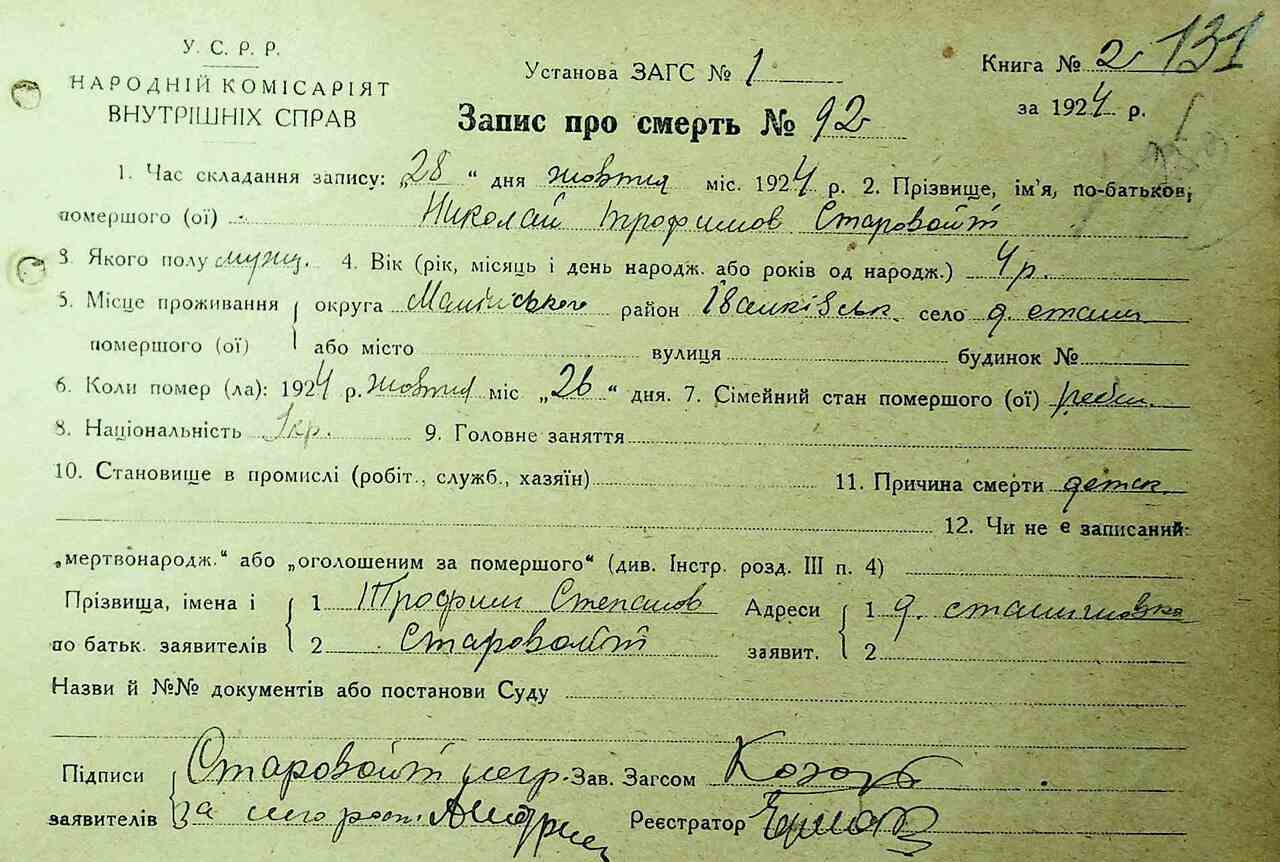 У. С. Р. Р.
НАРОДНІЙ КОМІСАРІЯТ
ВНУТРІШНІХ СПРАВ
Установа ЗАГС № 1
Книга № 2 131
за 1924 р.
Запис про смерть № 92
1. Час складання запису: „28“ дня жовтня міс. 1924 р. 2. Прізвище, ім'я, по-батьков,
помершого (ої) Николай Трофимов Старовойт
3. Якого полу мужч. 4. Вік (рік, місяць і день народж. або років од народж.) 4 р.
5. Місце проживання округа район Іванківськ. село д. стани
помершого (ої) або місто вулиця будинок №
6. Коли помер (ла): 1924 р. жовтня міс „26“ дня. 7. Сімейний стан помершого (ої)
8. Національність Укр. 9. Головне заняття
10. Становище в промислі (робіт., служб., хазяїн) 11. Причина смерти детск.
12. Чи не є записаний:
„мертвонародж.“ або „оголошеним за помершого“ (див. Інстр. розд. III п. 4)
Прізвища, імена і 1 Трофим Степанов Адреси 1 д. станишовка
по батьк. заявителів 2 Старовойт заявит. 2
Назви й №№ документів або постанови Суду
Підписи Старовойт негр. Зав. Загсом
заявителів За него росп. Реєстратор